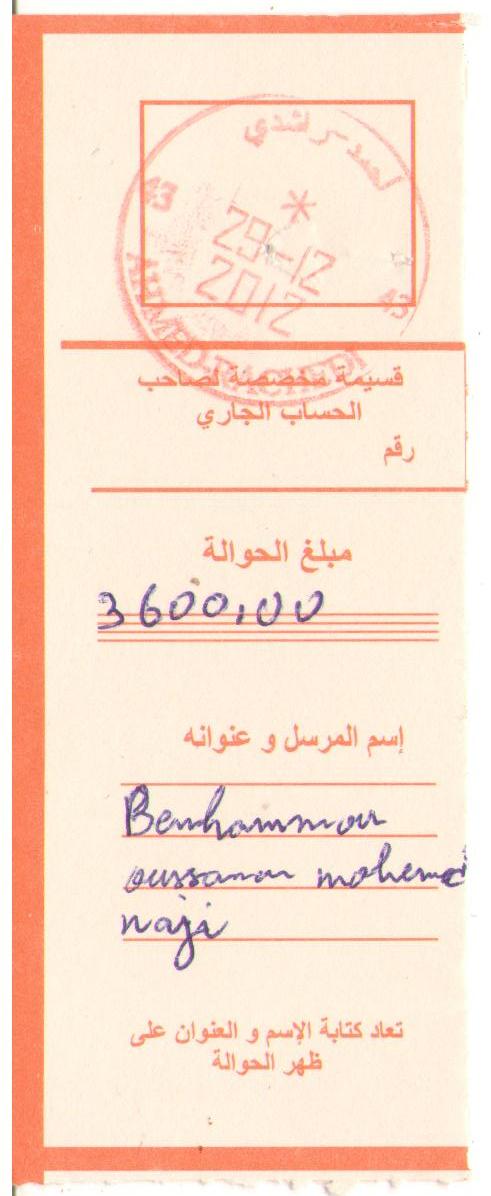 احمد راشدي
43
*
29-12
2012
43
AHMED-RACHEDI
قسيمة مخصصة لصاحب
الحساب الجاري
رقم
مبلغ الحوالة
3600,00
إسم المرسل و عنوانه
Benhammou
oussama mohamed
naji
تعاد كتابة الإسم و العنوان على
ظهر الحوالة